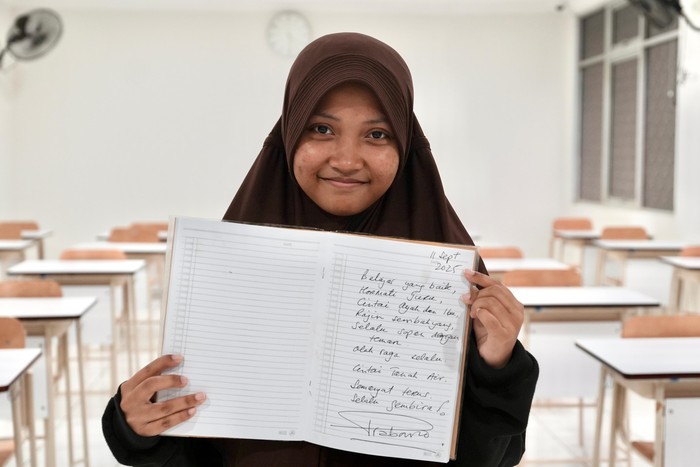 11 Sept
2025
Belajar yang baik,
Hormati guru,
Cintai Ayah dan Ibu
Rajin sembahyang,
Selalu sopan dengan
teman
Olah raga selalu
Cintai Tanah Air.
Semangat terus
Selalu gembira!
Prabowo